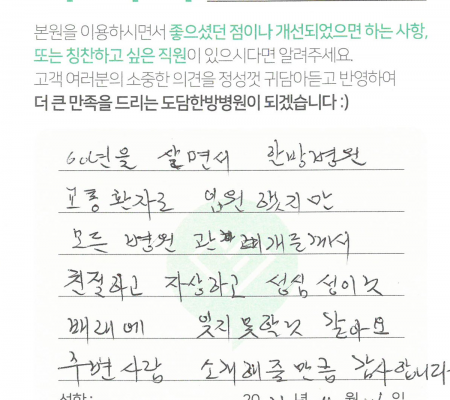 본원을 이용하시면서 좋으셨던 점이나 개선되었으면 하는 사항,
또는 칭찬하고 싶은 직원이 있으시다면 알려주세요.
고객 여러분의 소중한 의견을 정성껏 귀담아듣고 반영하여
더 큰 만족을 드리는 도담한방병원이 되겠습니다 :)
60년을 살면서 한방병원
교통환자로 입원 했지만
모든 병원 관계자분께서
친절하고 자상하고 성심 성이것
배래에 잊지못할것 같아요
주변사람 소개해줄만큼 감사합니다
성함: 20 년 월 일